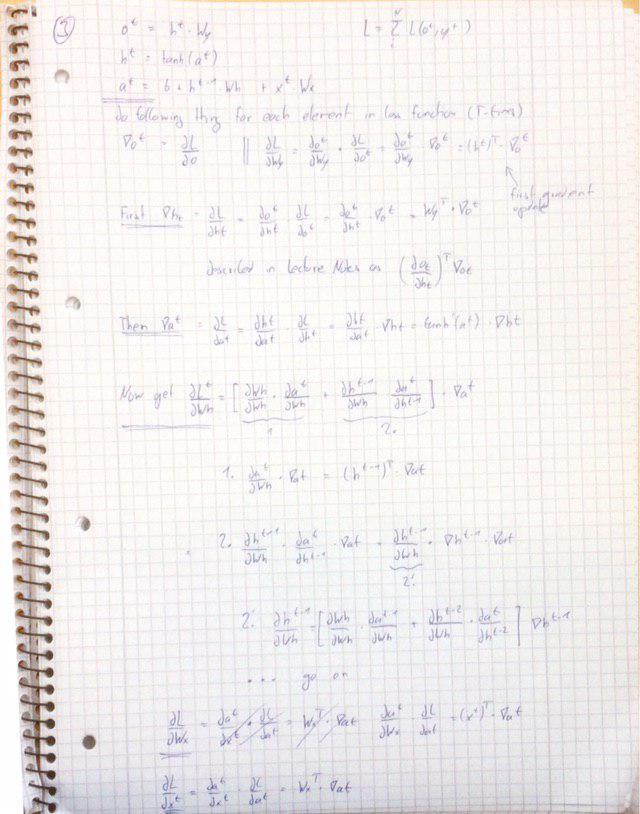 ③ o^t = h^t · Wy    L = Σ L(o^t, y^t)
h^t = tanh(a^t)
a^t = b + h^{t-1} · Wh + x^t · Wx
do following thing for each element in loss function (T-times)
∇o^t = ∂L/∂o || ∂L/∂Wy = ∂o^t/∂Wy · ∂L/∂o^t = ∂o^t/∂Wy · ∇o^t = (h^t)^T · ∇o^t
first gradient
update
First ∇ht = ∂L/∂ht = ∂o^t/∂ht · ∂L/∂o^t = ∂o^t/∂ht · ∇o^t = Wy^T · ∇o^t
described in Lecture Notes as (∂ot/∂ht)^T ∇ot
Then ∇a^t = ∂L/∂a^t = ∂ht/∂a^t · ∂L/∂h^t = ∂ht/∂a^t · ∇ht = tanh'(a^t) · ∇ht
Now get ∂L^t/∂Wh = [∂Wh/∂Wh · ∂a^t/∂Wh + ∂h^{t-1}/∂Wh · ∂a^t/∂h^{t-1}] · ∇a^t
1 2.
1. ∂a^t/∂Wh · ∇at = (h^{t-1})^T · ∇at
2. ∂h^{t-1}/∂Wh · ∂a^t/∂h^{t-1} · ∇at = ∂h^{t-1}/∂Wh · ∇h^{t-1} · ∇at
2!
2! ∂h^{t-1}/∂Wh = [∂Wh/∂Wh · ∂a^{t-1}/∂Wh + ∂h^{t-2}/∂Wh · ∂a^t/∂h^{t-2}] ∇h^{t-1}
... go on
∂L/∂Wx = ∂a^t/∂x^t · ∂L/∂a^t = Wx^T · ∇at ∂a^t/∂Wx · ∂L/∂at = (x^t)^T · ∇at
∂L/∂x^t = ∂a^t/∂x^t · ∂L/∂a^t = Wx^T · ∇at